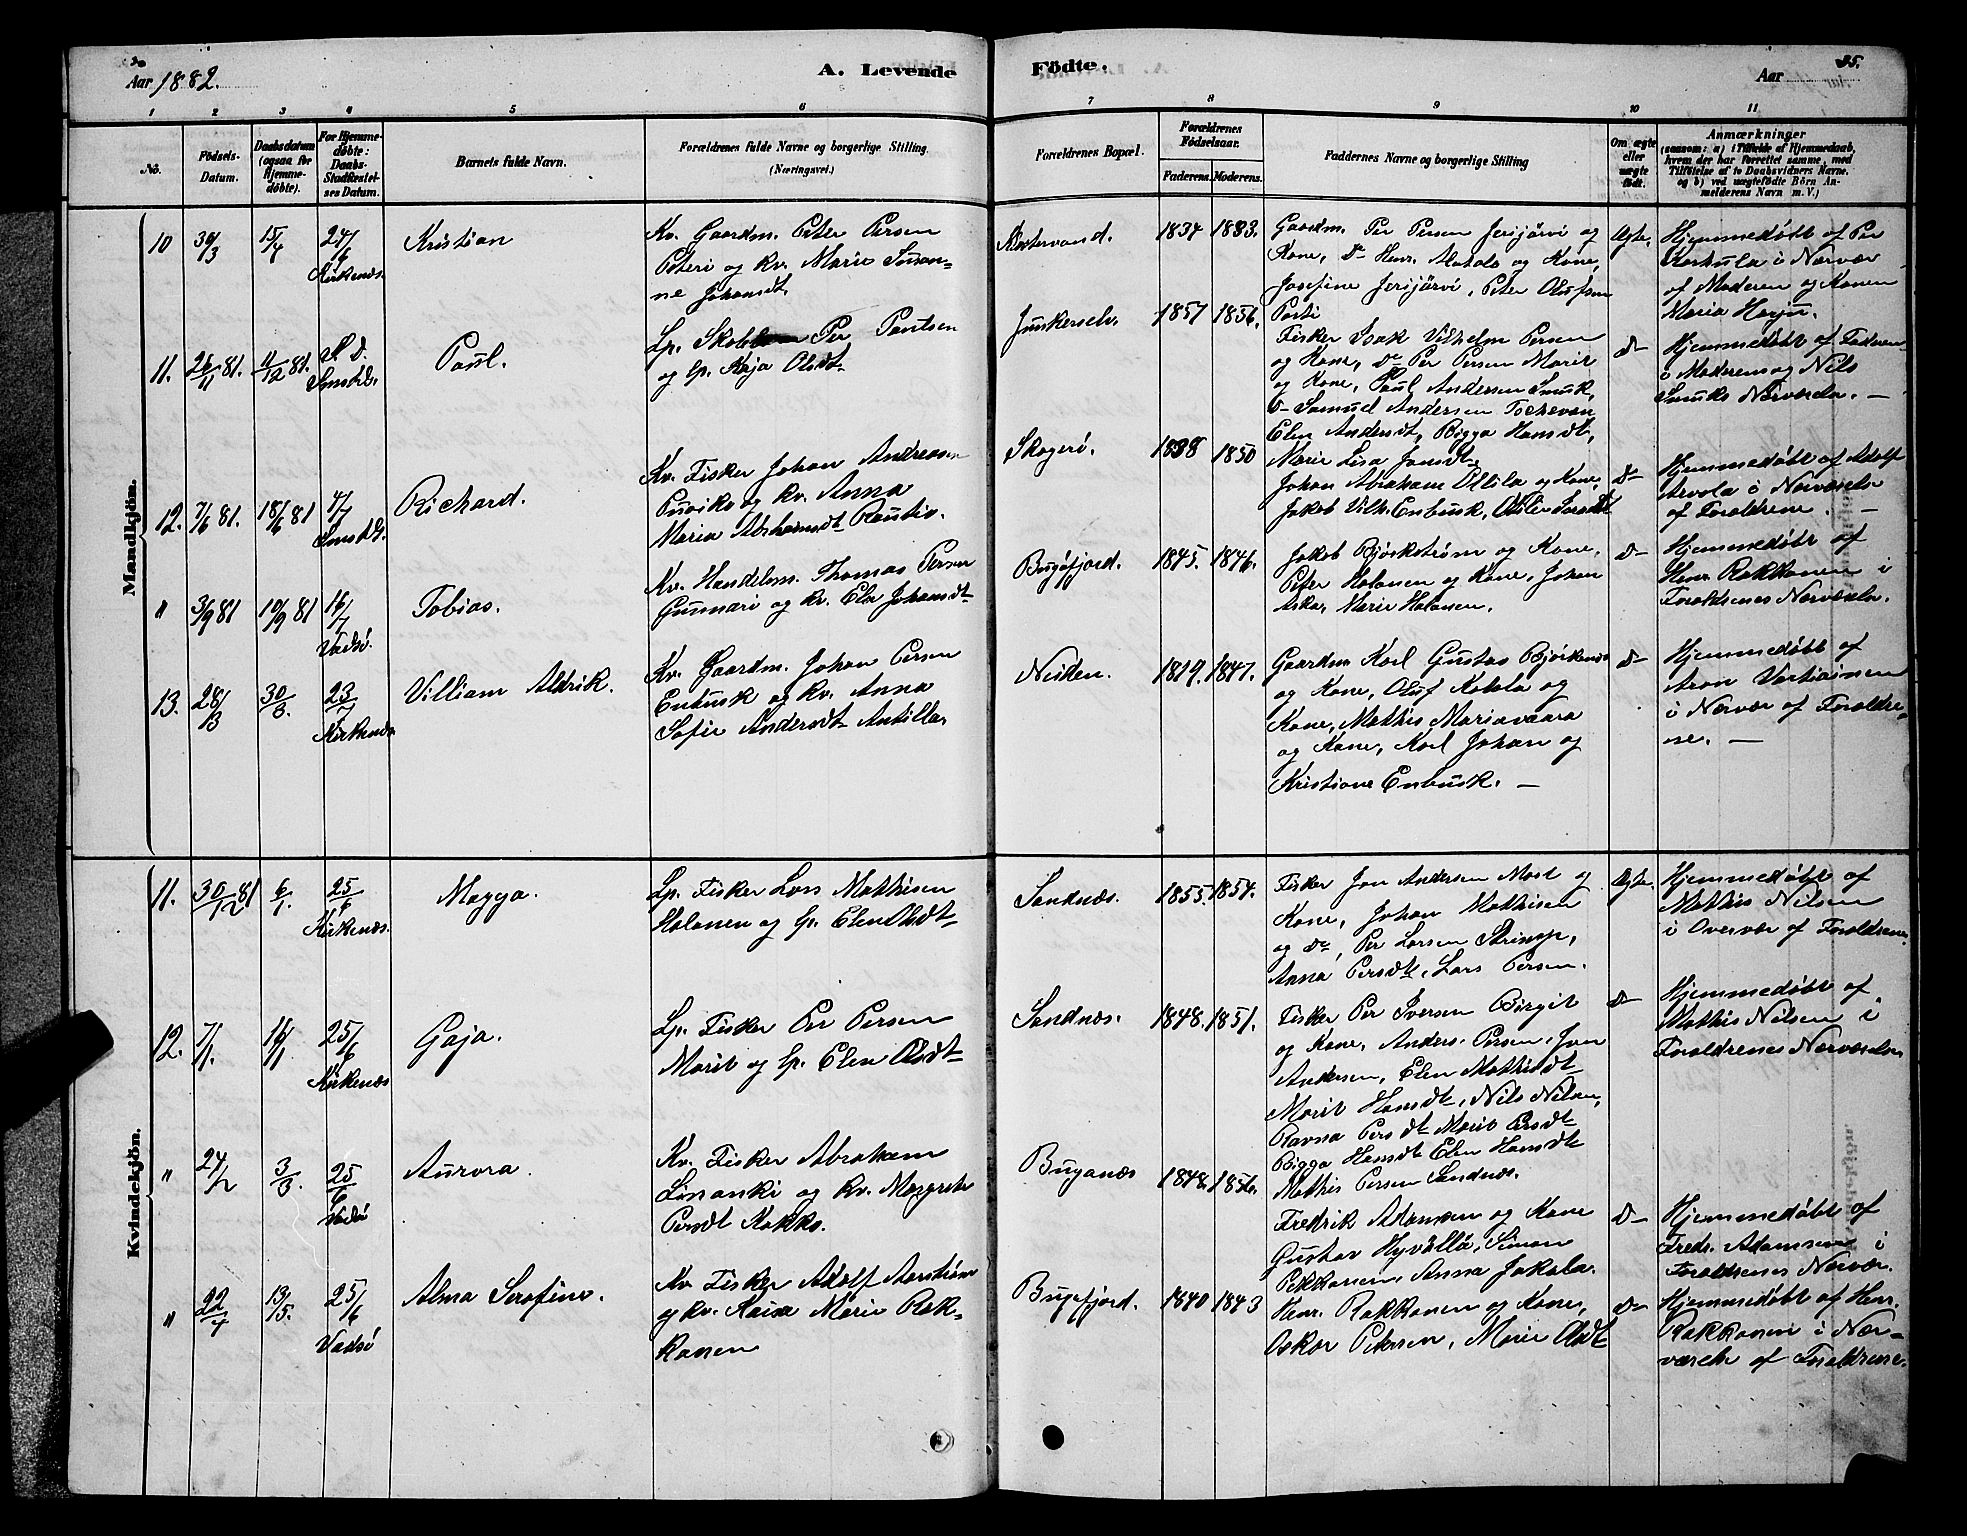 Aar 1882.
A. Levende
Födte.
Aar
35.
1 2 3 4 5 6 7 8 9 10 11
No.
Födsels-
Datum.
Daabsdatum
(ogsaa for
Hjemme-
døbte).
For Hjemme-
døbte:
Daabs-
Stadfæstel-
ses Datum.
Barnets fulde Navn.
Forældrenes fulde Navne og borgerlige Stilling.
(Næringsvei.)
Forældrenes Bopæl.
Forældrenes
Fødselsaar.
Faderens. Moderens.
Faddernes Navne og borgerlige Stilling
Om ægte
eller
uægte
født.
Anmærkninger
(saasom: a) i Tilfælde af Hjemmedaab,
hvem der har forrettet samme, med
Tilføielse af to Daabsvidners Navne.
og b) ved uægtefødte Börn An-
melderens Navn m. V.)
Mandkjön.
10 30/3 15/4 24/6
Kirkenæs.
Kristian
Kv. Gaardm. Peter Persen
Peteri og Kv. Marie Susan-
ne Johansdt.
1834 1833.
Gaardm. Per Persen Jerijärvi og
Kone, Do Henr. Alatalo og Kone,
Josefine Jerijärvi, Peter Olufsen
Porti
Ægte.
Hjemmedøbt af Per
Karhula i Nærvær
af Moderen og Konen
Maria Harju.
11. 26/11 81. 4/12 81. S. D.
Paul.
Lp. Per Paulsen
og Lp. Kaja Olsdt.
Junkerselv.
1857 1856.
Fisker Isak Vilhelm Persen
og Kone, Do Per Persen Marit
og Kone, Paul Andersen Smuk,
Do Samuel Andersen
Elen Andersdt, Bigga Hansdt,
Marie Lisa Jonsdt.
Do
Hjemmedøbt af Faderen
i Moderens og Nils
Smuks Nærværelse. —
12. 7/6 81. 18/6 81 4/7
Richard.
Kv. Fisker Johan Andreasen
og Kv. Anna
Maria Abrahamsdt Rautio.
Skogerö.
1838 1850
Johan Abraham Ollila og Kone,
Jakob Vilh. Enbusk,
Do
Hjemmedøbt af Adolf
Arvola i Nærværelse
af Forældrene. —
" 3/9 81 10/9 81 16/7
Vadsö.
Tobias.
Kv. Handelsm. Thomas Persen
Gunnari og Kv. Ela Johansdt
Bugöfjord.
1845. 1846.
Jakob Björkström og Kone,
Peter Halonen og Kone, Johan
Aska, Marie Halonen.
Do
Hjemmedøbt af
Henr. Rakkonen i
Forældrenes Nærværelse.
13. 28/3 30/3. 23/7
Kirkenæs
Villiam Aldrik.
Kv. Gaardm. Johan Persen
Enbusk og Kv. Anna
Sofie Andersdt Antilla.
Neiden.
1819. 1847.
Gaardm. Karl Gustav Björkenes
og Kone, Oluf Kokola og
Kone, Mathis Mariavaara
og Kone, Karl Johan og
Kristiane Enbusk. —
Do
Hjemmedøbt af
Aron Vartiainen
i Nærvær af Forældre-
ne. —
Kvindekjön.
11. 30/12 81 6/1. 25/6
Kirkenæs.
Magga.
Lp. Fisker Lars Mathisen
Halonen og Lp. Elen Olsdt
Sandnæs.
1855. 1854.
Fisker Jon Andersen Most og
Kone, Johan Mathisen
og Do, Per Larsen Strinop,
Anna Persdt, Lars Persen.
Ægte.
Hjemmedøbt af
Mathis Nilsen
i Overvær af Forældrene.
12. 7/1. 16/1 25/6
Kirkenæs
Gaja.
Lp. Fisker Per Persen
Marit og Lp. Elen Olsdt
Sandnæs.
1848. 1851.
Fisker Per Iversen Birgit
og Kone, Anders Persen, Jon
Andersen, Elen Mathisdt
Marit Hansdt, Nils Nilsen,
Ravna Persdt Marit Persdt
Bigga Hansdt Elen Hansdt
Mathis Persen Sandnæs.
Do
Hjemmedøbt af
Mathis Nilsen i
Forældrenes Nærværelse
" 24/2 3/3. 25/6
Vadsö
Aurora.
Kv. Fisker Abraham
Linanki og Kv. Margrete
Persdt Kokko.
Bugönæs
1848. 1856.
Fredrik Adamsen og Kone
Gustav Hyvällä, Simon
Pekkonen, Anna Jakola.
Do
Hjemmedøbt af
Fredr. Adamsen i
Forældrenes Nærvær.
" 22/4 13/5. 25/6
Vadsö
Alma Serafine.
Kv. Fisker Adolf
og Kv. Kaisa Marie Rak-
konen
Bugöfjord.
1840 1843
Henr. Rakkonen og Kone,
Oskar Petersen, Marie Olsdt
Do
Hjemmedøbt af Henr.
Rakkonen i Nær-
værelse af Forældrene.